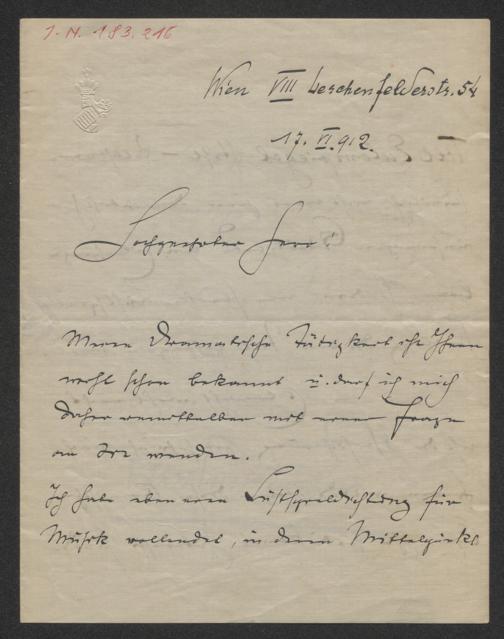 J. N. 183.216
Wien VIII Lerchenfelderstr. 54
17. VI. 912.
Hochgeehrter Herr!
Meine dramatische Tätigkeit ist Ihnen
wohl schon bekannt u. darf ich mich
daher unmittelbar mit einer Frage
an Sie wenden.
Ich habe eben eine Lustspieldichtung für
Musik vollendet, in deren Mittelpunkt